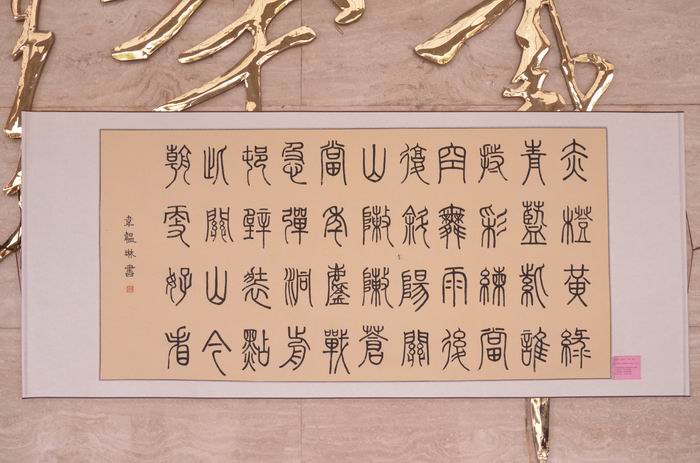 赤橙黃綠
青藍紫誰
持彩練當
空舞雨後
復斜陽關
山陣陣蒼
當年鏖戰
急彈洞前
邨壁裝點
此關山今
朝更好看
韋韞琳書